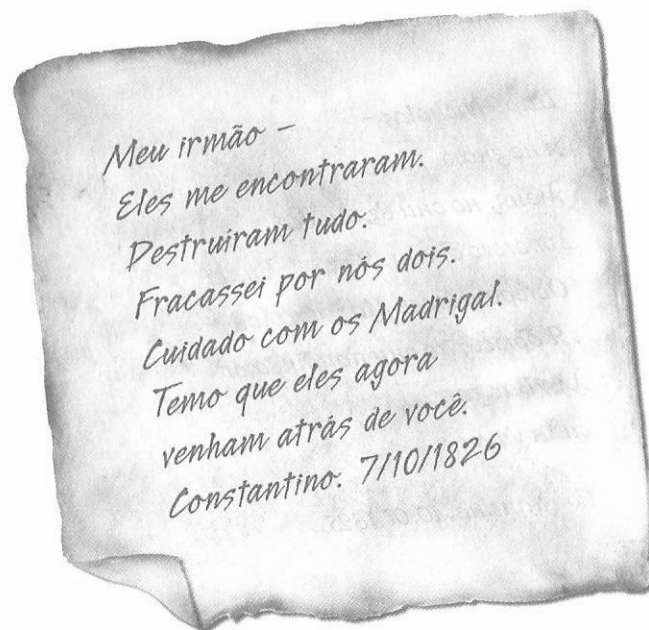 Meu irmão –
Eles me encontraram.
Destruíram tudo.
Fracassei por nós dois.
Cuidado com os Madrigal.
Temo que eles agora
venham atrás de você.
Constantino. 7/10/1826